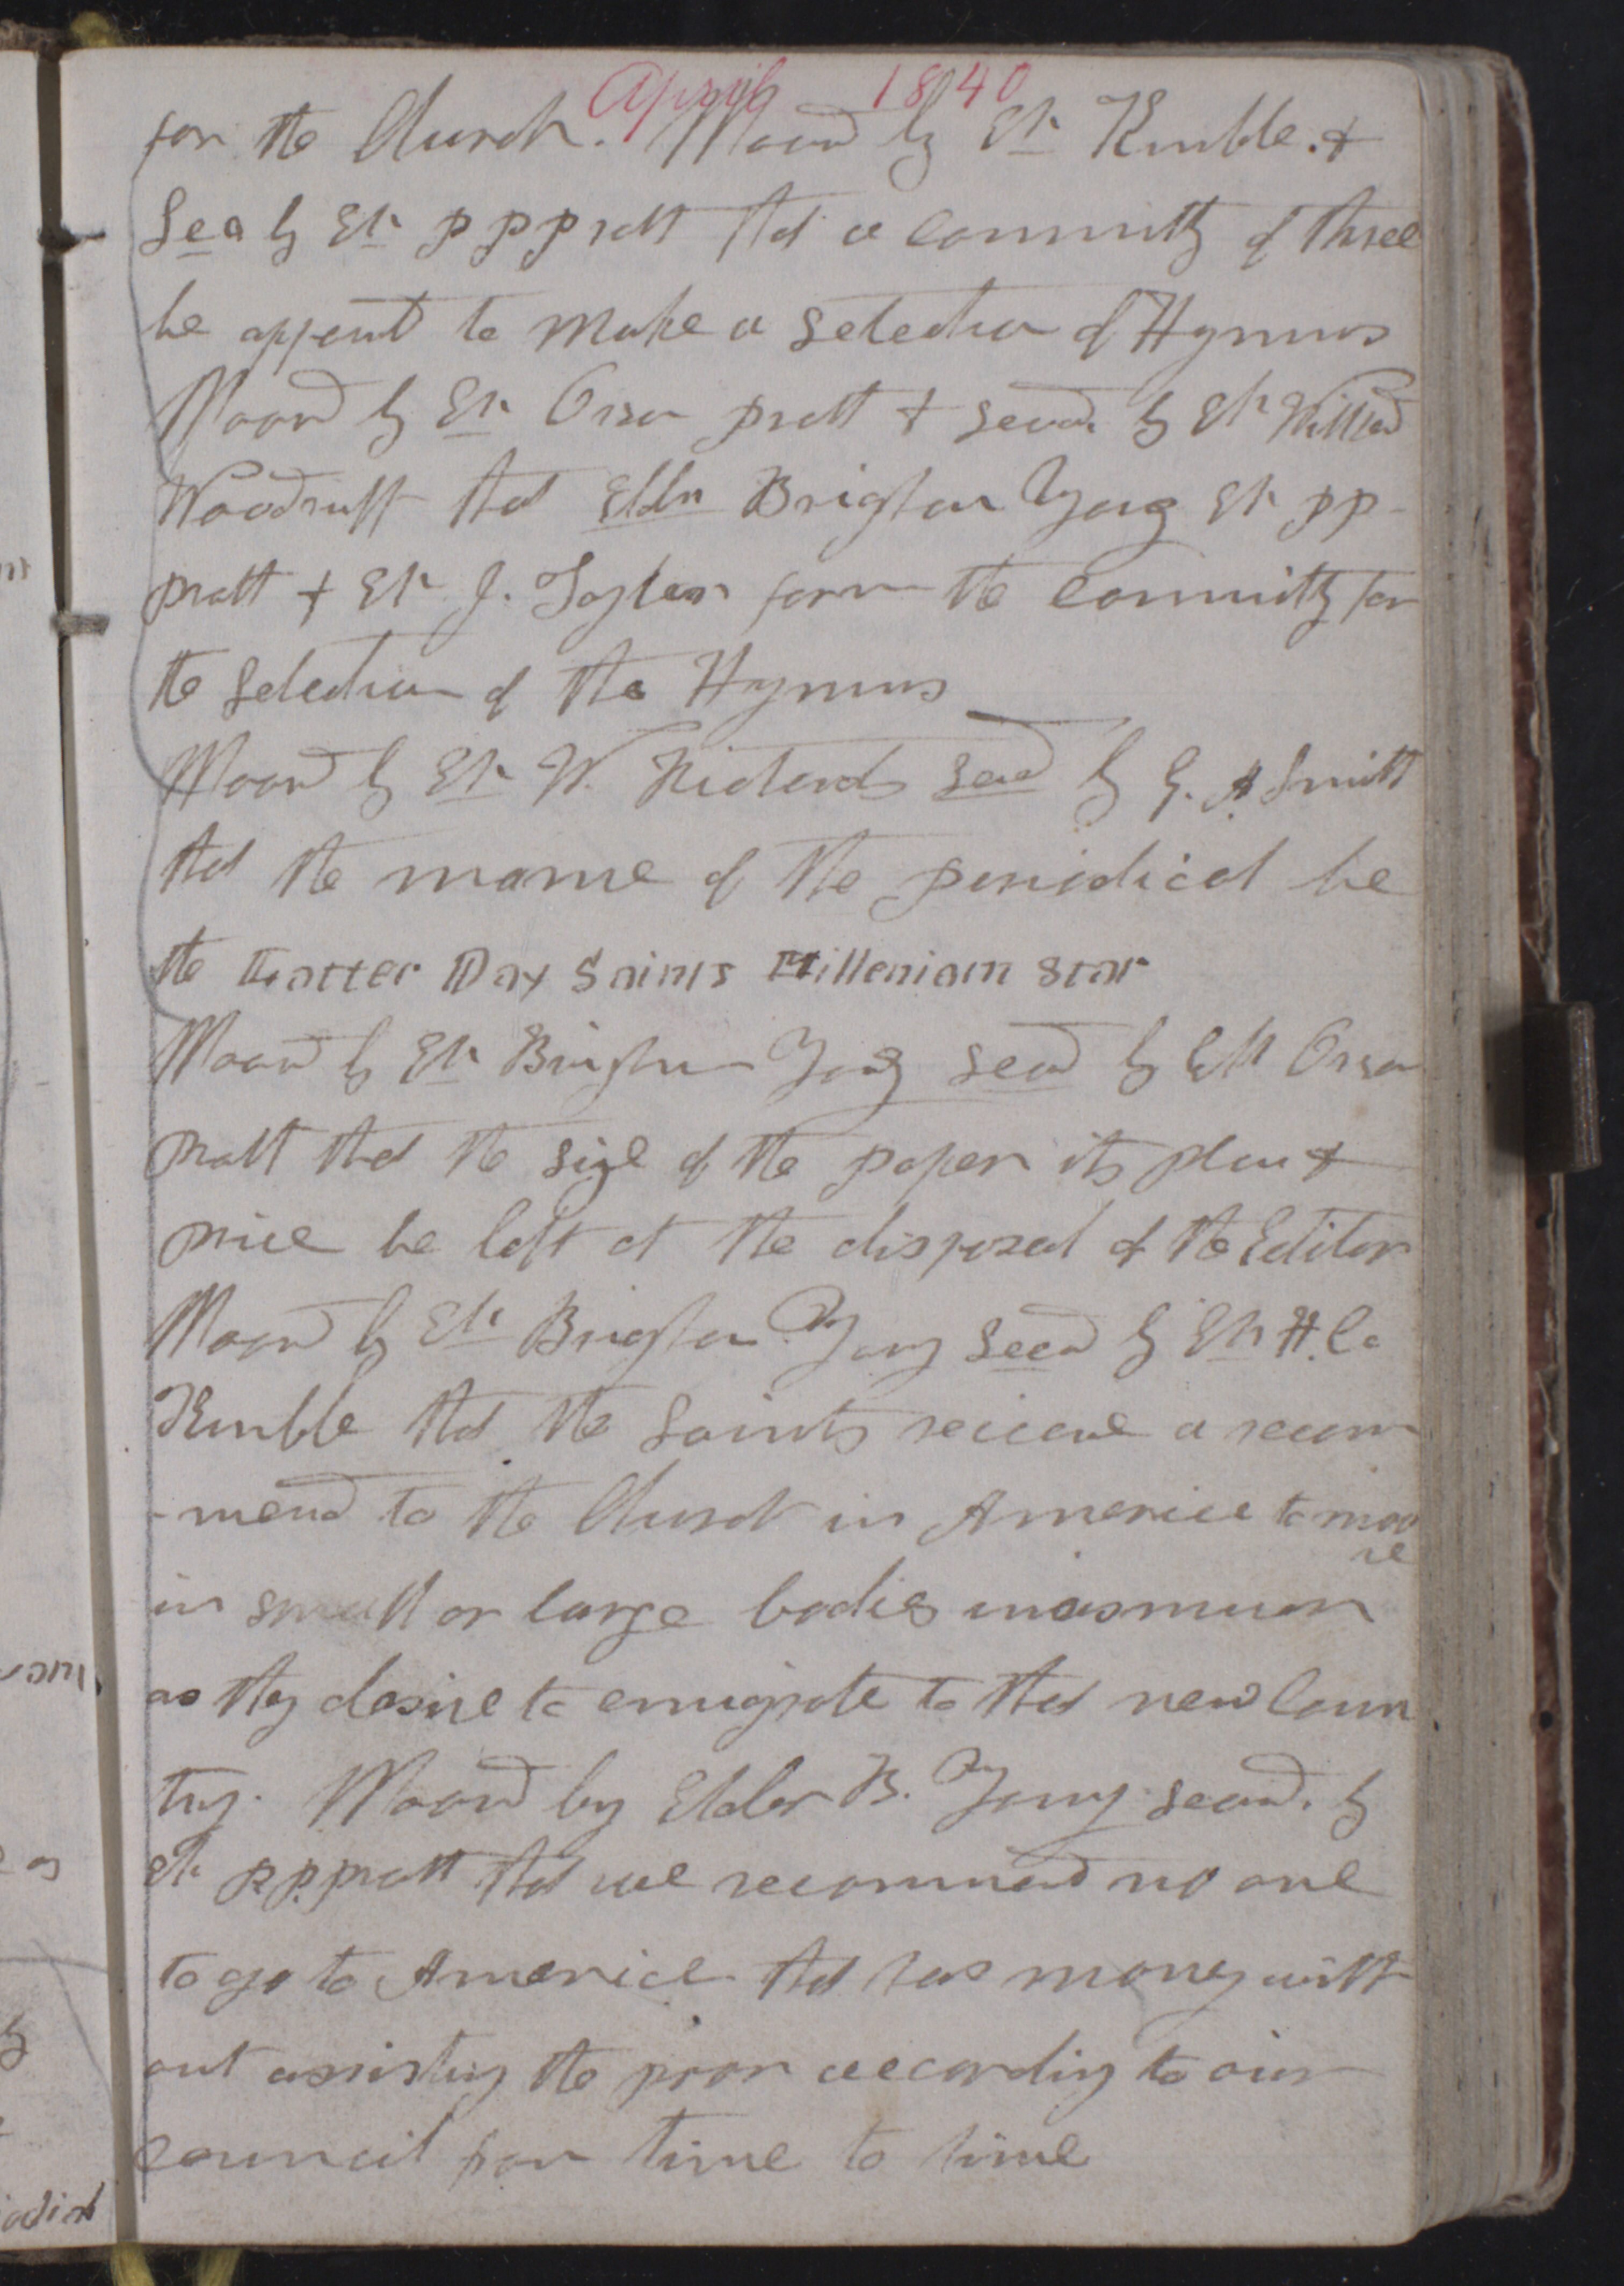 April 1840
for the Church. Moovd by Er Kimble. &
Sec by Er P P Pratt that a committy of three
be appont to make a selection of Hymns
Moovd by Er Orson Pratt & secd. by Er Willford
Woodruff that Eldr Brigham Yong Er P P
Pratt & Er J. Taylor form the committy for
the selection of the Hymns
Moovd by Er W. Richards secd by G. A Smith
that the name of the periodical be
the Latter Day Saints Milleniam Star
Moovd by Er Brigham Yong Secd by Er Orson
Pratt that the size of the paper its plan &
price be left at the disposal of the Editor
Moovd by Er Brigham Yong Secd by Er H. C.
Kimble that the Saints recieve a recom
-mend to the Church in America to moo
ve
in small or large bodies inasmuch
as they desire to emigrate to that new Coun
try. Moovd by Elder B. Yong secd. by
Er P. P. Pratt that we recommend no one
to go to America that has money with
out assisting the poor according to our
council from time to time